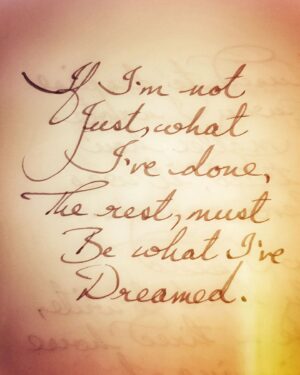 If I'm not
Just, what
I've done,
The rest, must
Be what I've
Dreamed.